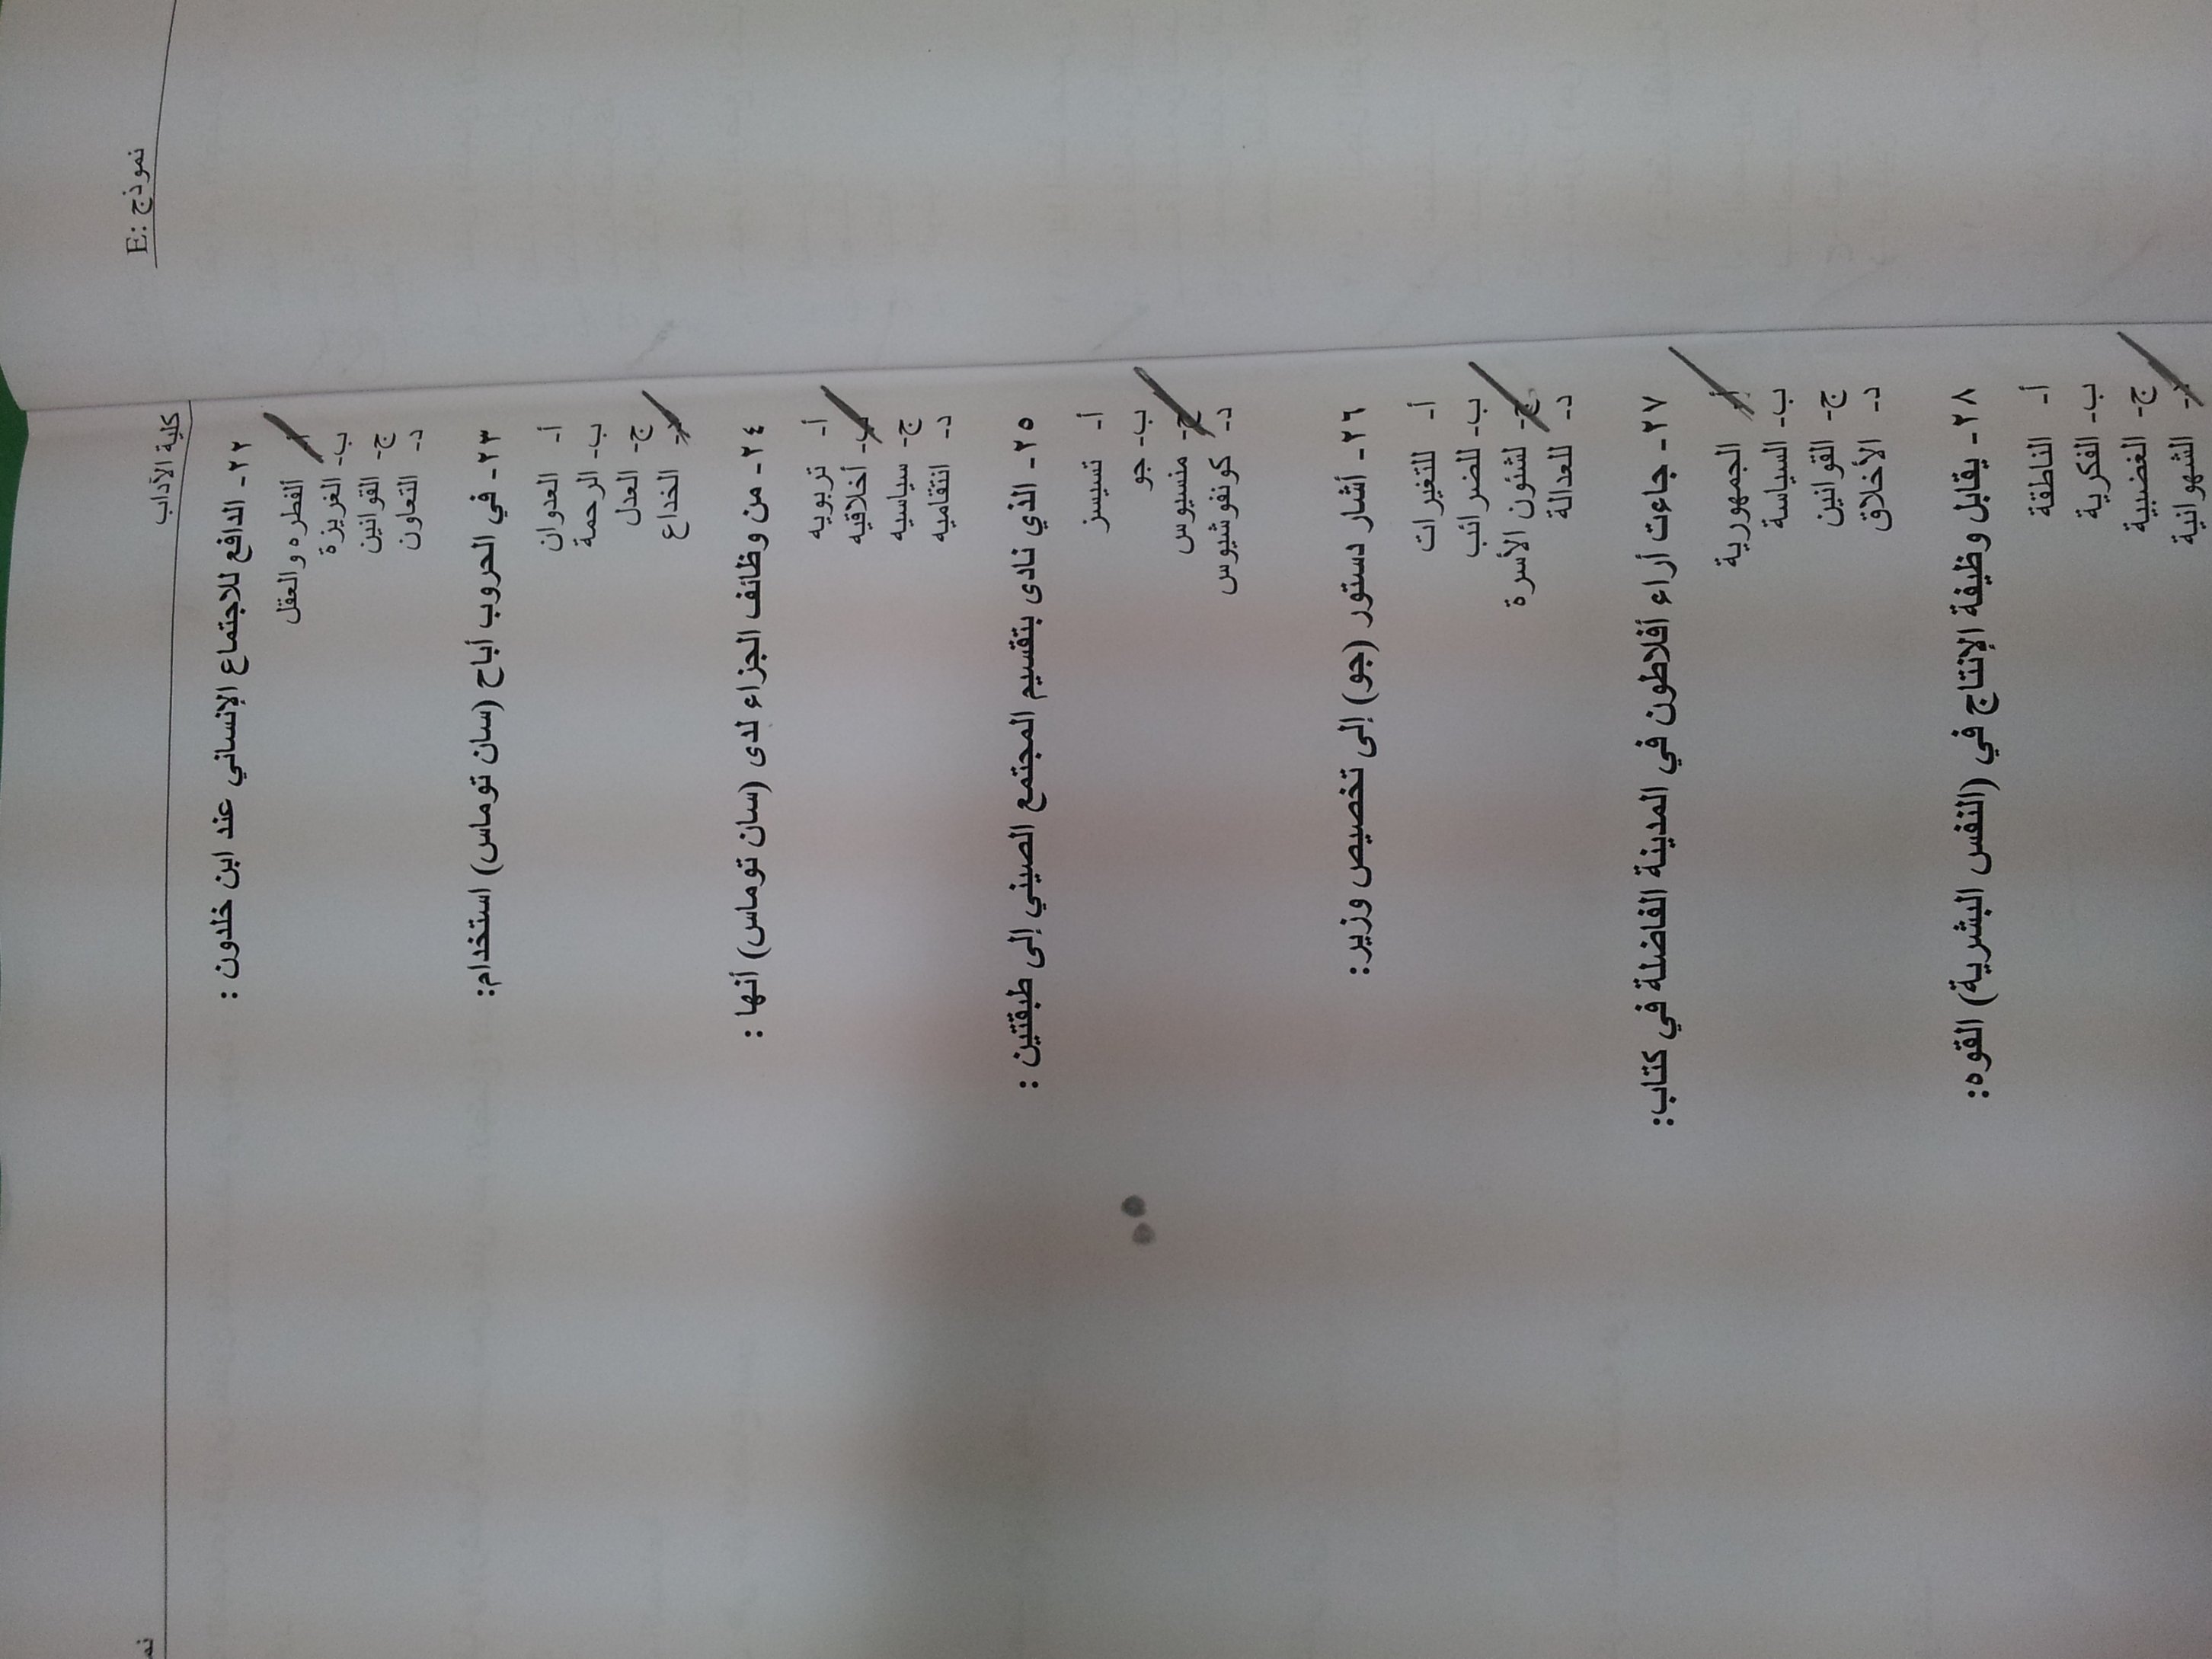 نموذج: E
كلية الآداب
٢٢- الدافع للاجتماع الإنساني عند ابن خلدون :
أ- الفطره والعقل
ب- الغريزة
ج- القوانين
د- التعاون
٢٣- في الحروب أباح (سان توماس) استخدام:
أ- العدوان
ب- الرحمة
ج- العدل
د- الخداع
٢٤- من وظائف الجزاء لدى (سان توماس) أنها :
أ- تربويه
ب- أخلاقيه
ج- سياسيه
د- انتقاميه
٢٥- الذي نادى بتقسيم المجتمع الصيني إلى طبقتين :
أ- تسيسز
ب- جو
ج- منسيوس
د- كونفوشيوس
٢٦- أشار دستور (جو) إلى تخصيص وزير:
أ- للتغيرات
ب- للضرائب
ج- لشئون الأسرة
د- للعدالة
٢٧- جاءت أراء أفلاطون في المدينة الفاضلة في كتاب:
أ- الجمهورية
ب- السياسة
ج- القوانين
د- الأخلاق
٢٨- يقابل وظيفة الإنتاج في (النفس البشرية) القوه:
أ- الناطقة
ب- الفكرية
ج- الغضبية
د- الشهوانية